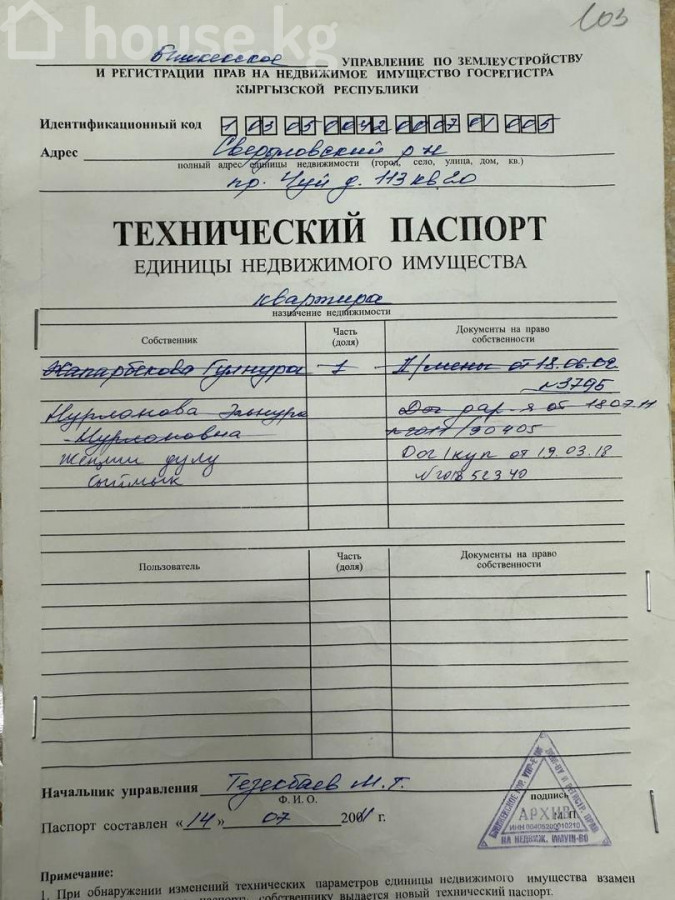 house.kg
103
Бишкекское УПРАВЛЕНИЕ ПО ЗЕМЛЕУСТРОЙСТВУ
И РЕГИСТРАЦИИ ПРАВ НА НЕДВИЖИМОЕ ИМУЩЕСТВО ГОСРЕГИСТРА
КЫРГЫЗСКОЙ РЕСПУБЛИКИ
Идентификационный код 1 03 05 0042 0007 01 005
Адрес Свердловский р-н
полный адрес единицы недвижимости (город, село, улица, дом, кв.)
пр. Чуй д. 113 кв 20
ТЕХНИЧЕСКИЙ ПАСПОРТ
ЕДИНИЦЫ НЕДВИЖИМОГО ИМУЩЕСТВА
квартира
назначение недвижимости
Собственник Часть (доля) Документы на право собственности
Жапарбекова Гулнура 1 Д/мены от 18.06.02
№3795
Нурланова Элнура Дог дар-я от 18.07.11
Нурлановна №2011/90405
Дог/куп от 19.03.18
Сыймык №2018 52340
Пользователь Часть (доля) Документы на право собственности
Начальник управления Тезекбаев М.Т.
Ф. И. О. подпись
Паспорт составлен «14» 07 2001 г. М.П
АРХИВ
НА НЕДВИЖ. ИМУЩ-ВО
Примечание:
1. При обнаружении изменений технических параметров единицы недвижимого имущества взамен
паспорт собственнику выдается новый технический паспорт.